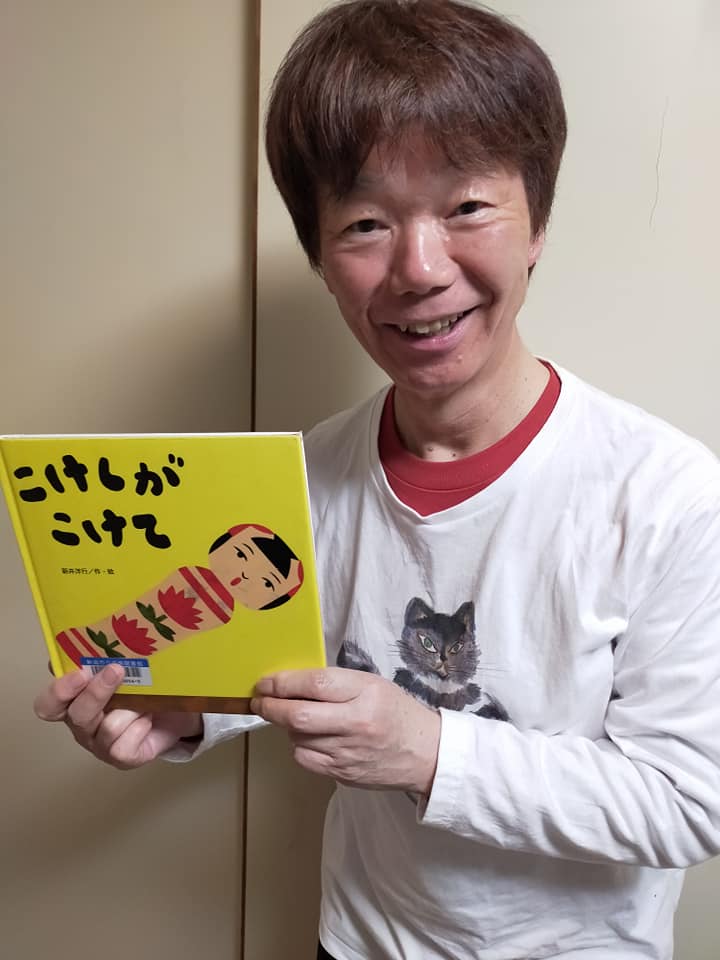 こけしが
こけて
新井洋行/作・絵